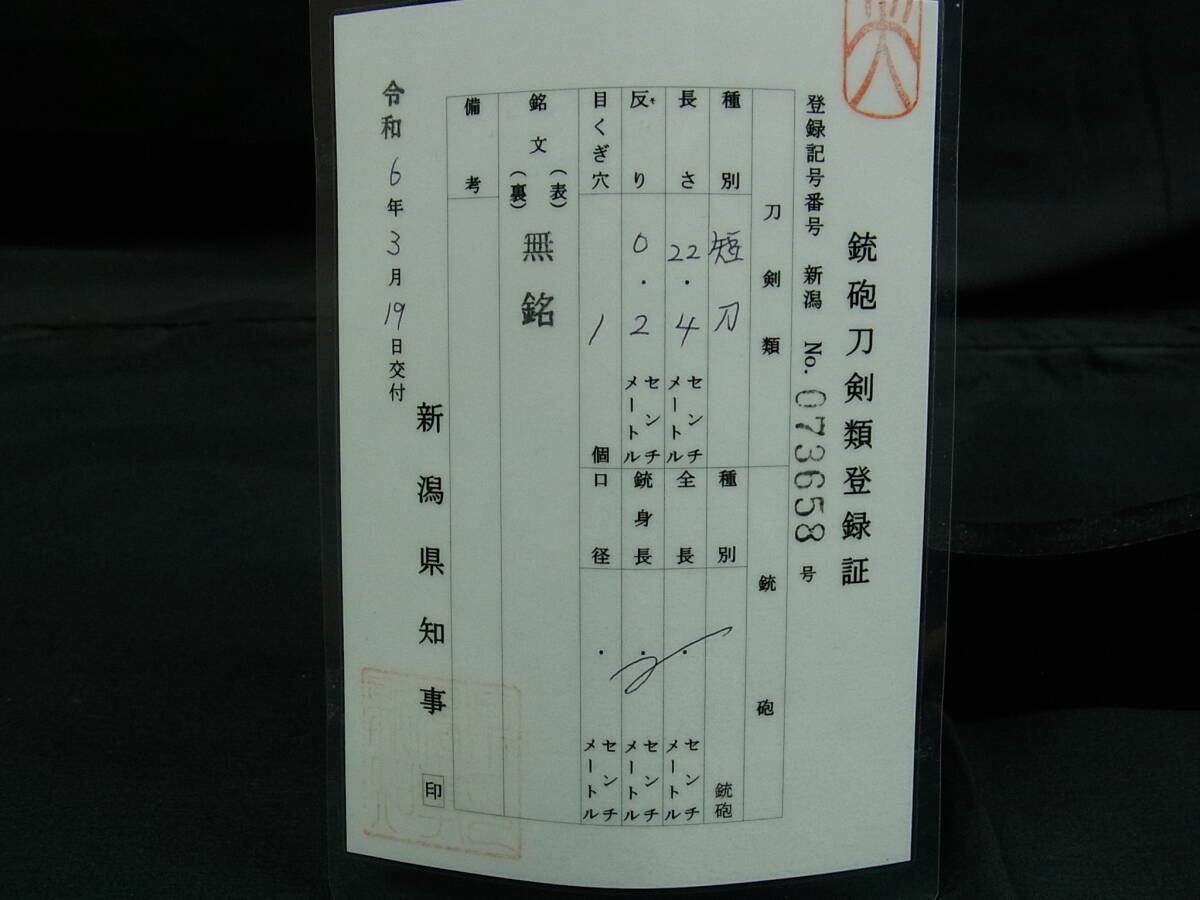 銃砲刀剣類登録証
登録記号番号 新潟 No. 073658 号
刀剣類
種別 短刀
長さ 22.4 センチメートル
反り 0.2 センチメートル
目くぎ穴 1 個
銘文 (表) (裏) 無銘
備考
銃砲
種別 銃砲
全長 . センチメートル
銃身長 . センチメートル
口径 . センチメートル
令和6年3月19日交付
新潟県知事 印